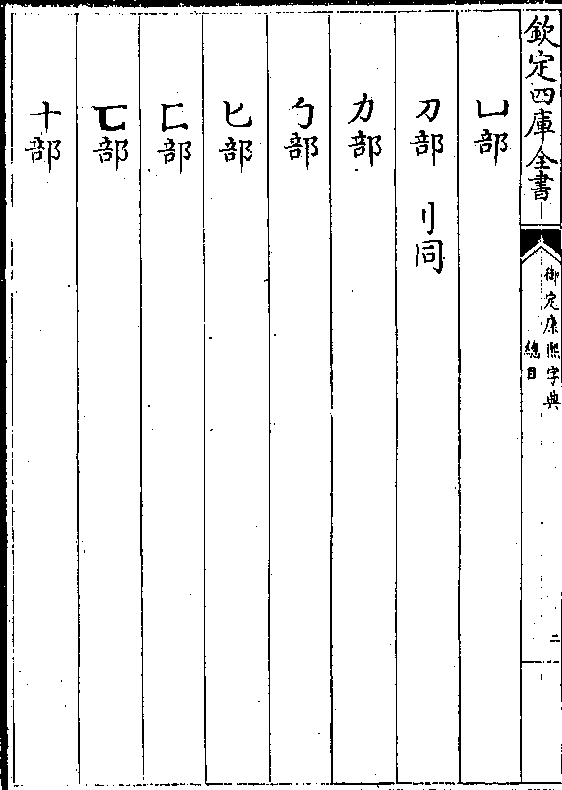 欽定四庫全書
御定康熙字典
總目
二
凵部
刀部 刂同
力部
勹部
匕部
匚部
匸部
十部